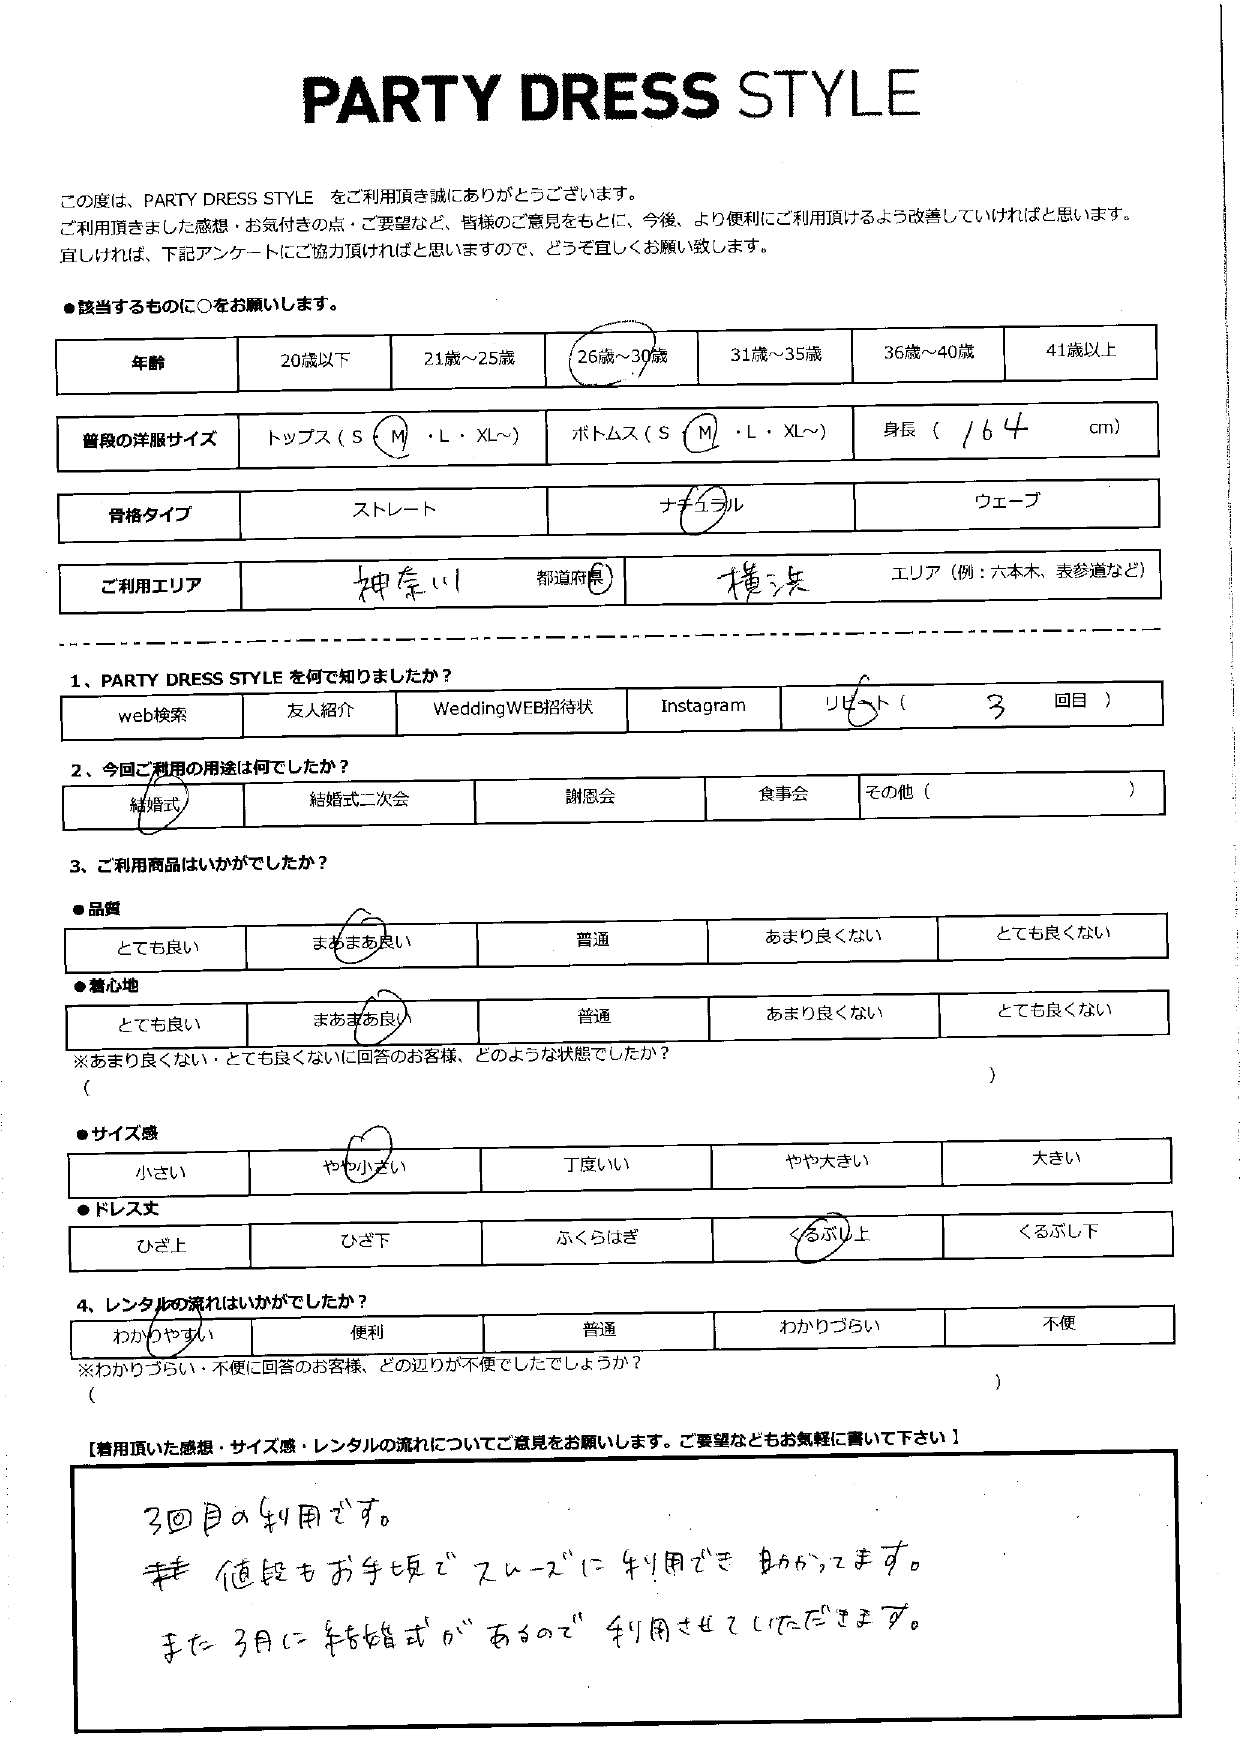 PARTY DRESS STYLE
この度は、PARTY DRESS STYLE をご利用頂き誠にありがとうございます。
ご利用頂きました感想・お気付きの点・ご要望など、皆様のご意見をもとに、今後、より便利にご利用頂けるよう改善していければと思います。
宜しければ、下記アンケートにご協力頂ければと思いますので、どうぞ宜しくお願い致します。
●該当するものに○をお願いします。
年齢 20歳以下 21歳～25歳 26歳～30歳 31歳～35歳 36歳～40歳 41歳以上
普段の洋服サイズ トップス（ S ・ M ・L ・ XL～） ボトムス（ S ・ M ・L ・ XL～） 身長 （ 164 cm）
骨格タイプ ストレート ナチュラル ウェーブ
ご利用エリア 神奈川 都道府県 横浜 エリア（例：六本木、表参道など）
1、PARTY DRESS STYLE を何で知りましたか？
web検索 友人紹介 WeddingWEB招待状 Instagram リピート（ 3 回目 ）
2、今回ご利用の用途は何でしたか？
結婚式 結婚式二次会 謝恩会 食事会 その他（ ）
3、ご利用商品はいかがでしたか？
●品質
とても良い まあまあ良い 普通 あまり良くない とても良くない
●着心地
とても良い まあまあ良い 普通 あまり良くない とても良くない
※あまり良くない・とても良くないに回答のお客様、どのような状態でしたか？
（ ）
●サイズ感
小さい やや小さい 丁度いい やや大きい 大きい
●ドレス丈
ひざ上 ひざ下 ふくらはぎ くるぶし上 くるぶし下
4、レンタルの流れはいかがでしたか？
わかりやすい 便利 普通 わかりづらい 不便
※わかりづらい・不便に回答のお客様、どの辺りが不便でしたでしょうか？
（ ）
【着用頂いた感想・サイズ感・レンタルの流れについてご意見をお願いします。ご要望などもお気軽に書いて下さい 】
3回目の利用です。
値段もお手頃でスムーズに利用でき助かってます。
また3月に結婚式があるので利用させていただきます。